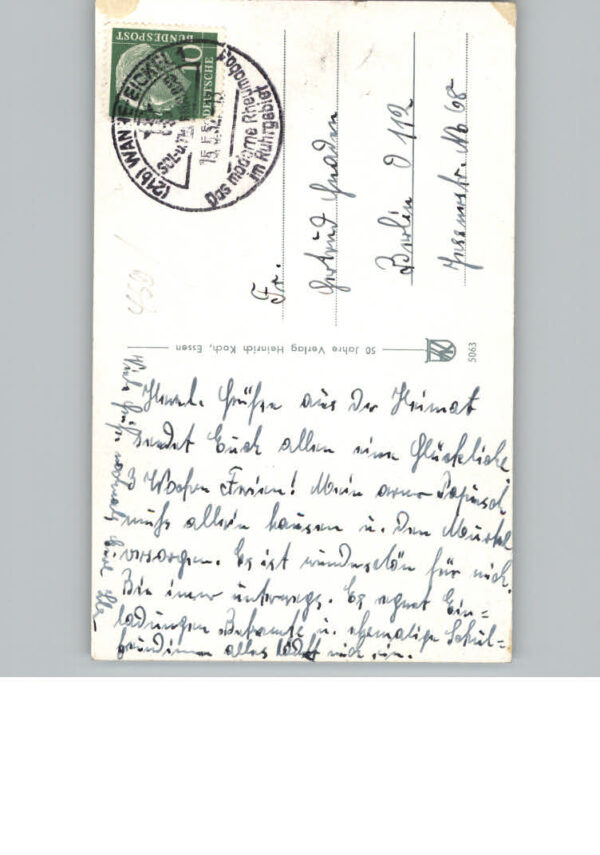 DEUTSCHE
BUNDESPOST
10
(21b) WANNE-EICKEL 1
Das moderne Rheumabad
im Ruhrgebiet
Fr.
Gertrud
Berlin O 112
68
50 Jahre Verlag Heinrich Koch, Essen
5063
Herzl. Grüße aus der Heimat
sendet Euch allen eine Glückliche
3 Wochen Ferien! Mein armer
muß allein hausen u. den
versorgen. Es ist wunderschön für mich.
Bin immer unterwegs. Es regnet Ein-
ladungen Bekannte u. ehemalige Schul-
freundinnen alles ladet mich ein.
Viele Grüße nochmals